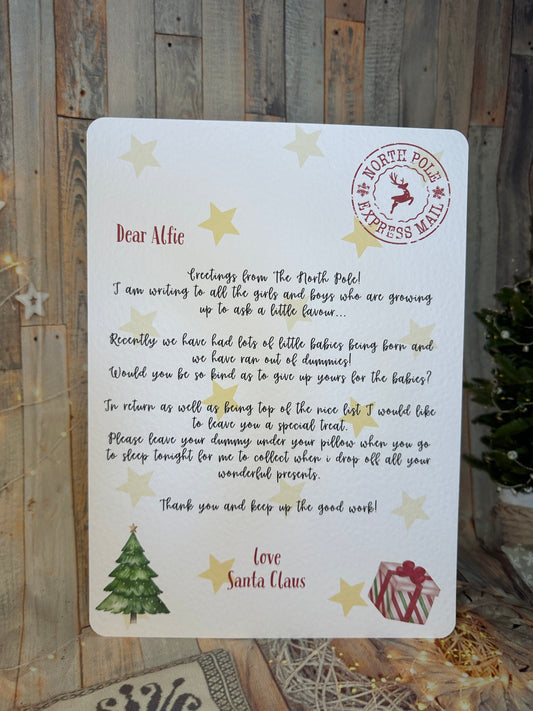 NORTH POLE
EXPRESS MAIL
Dear Alfie
Greetings from The North Pole!
I am writing to all the girls and boys who are growing
up to ask a little favour...
Recently we have had lots of little babies being born and
we have ran out of dummies!
Would you be so kind as to give up yours for the babies?
In return as well as being top of the nice list I would like
to leave you a special treat.
Please leave your dummy under your pillow when you go
to sleep tonight for me to collect when i drop off all your
wonderful presents.
Thank you and keep up the good work!
Love
Santa Claus